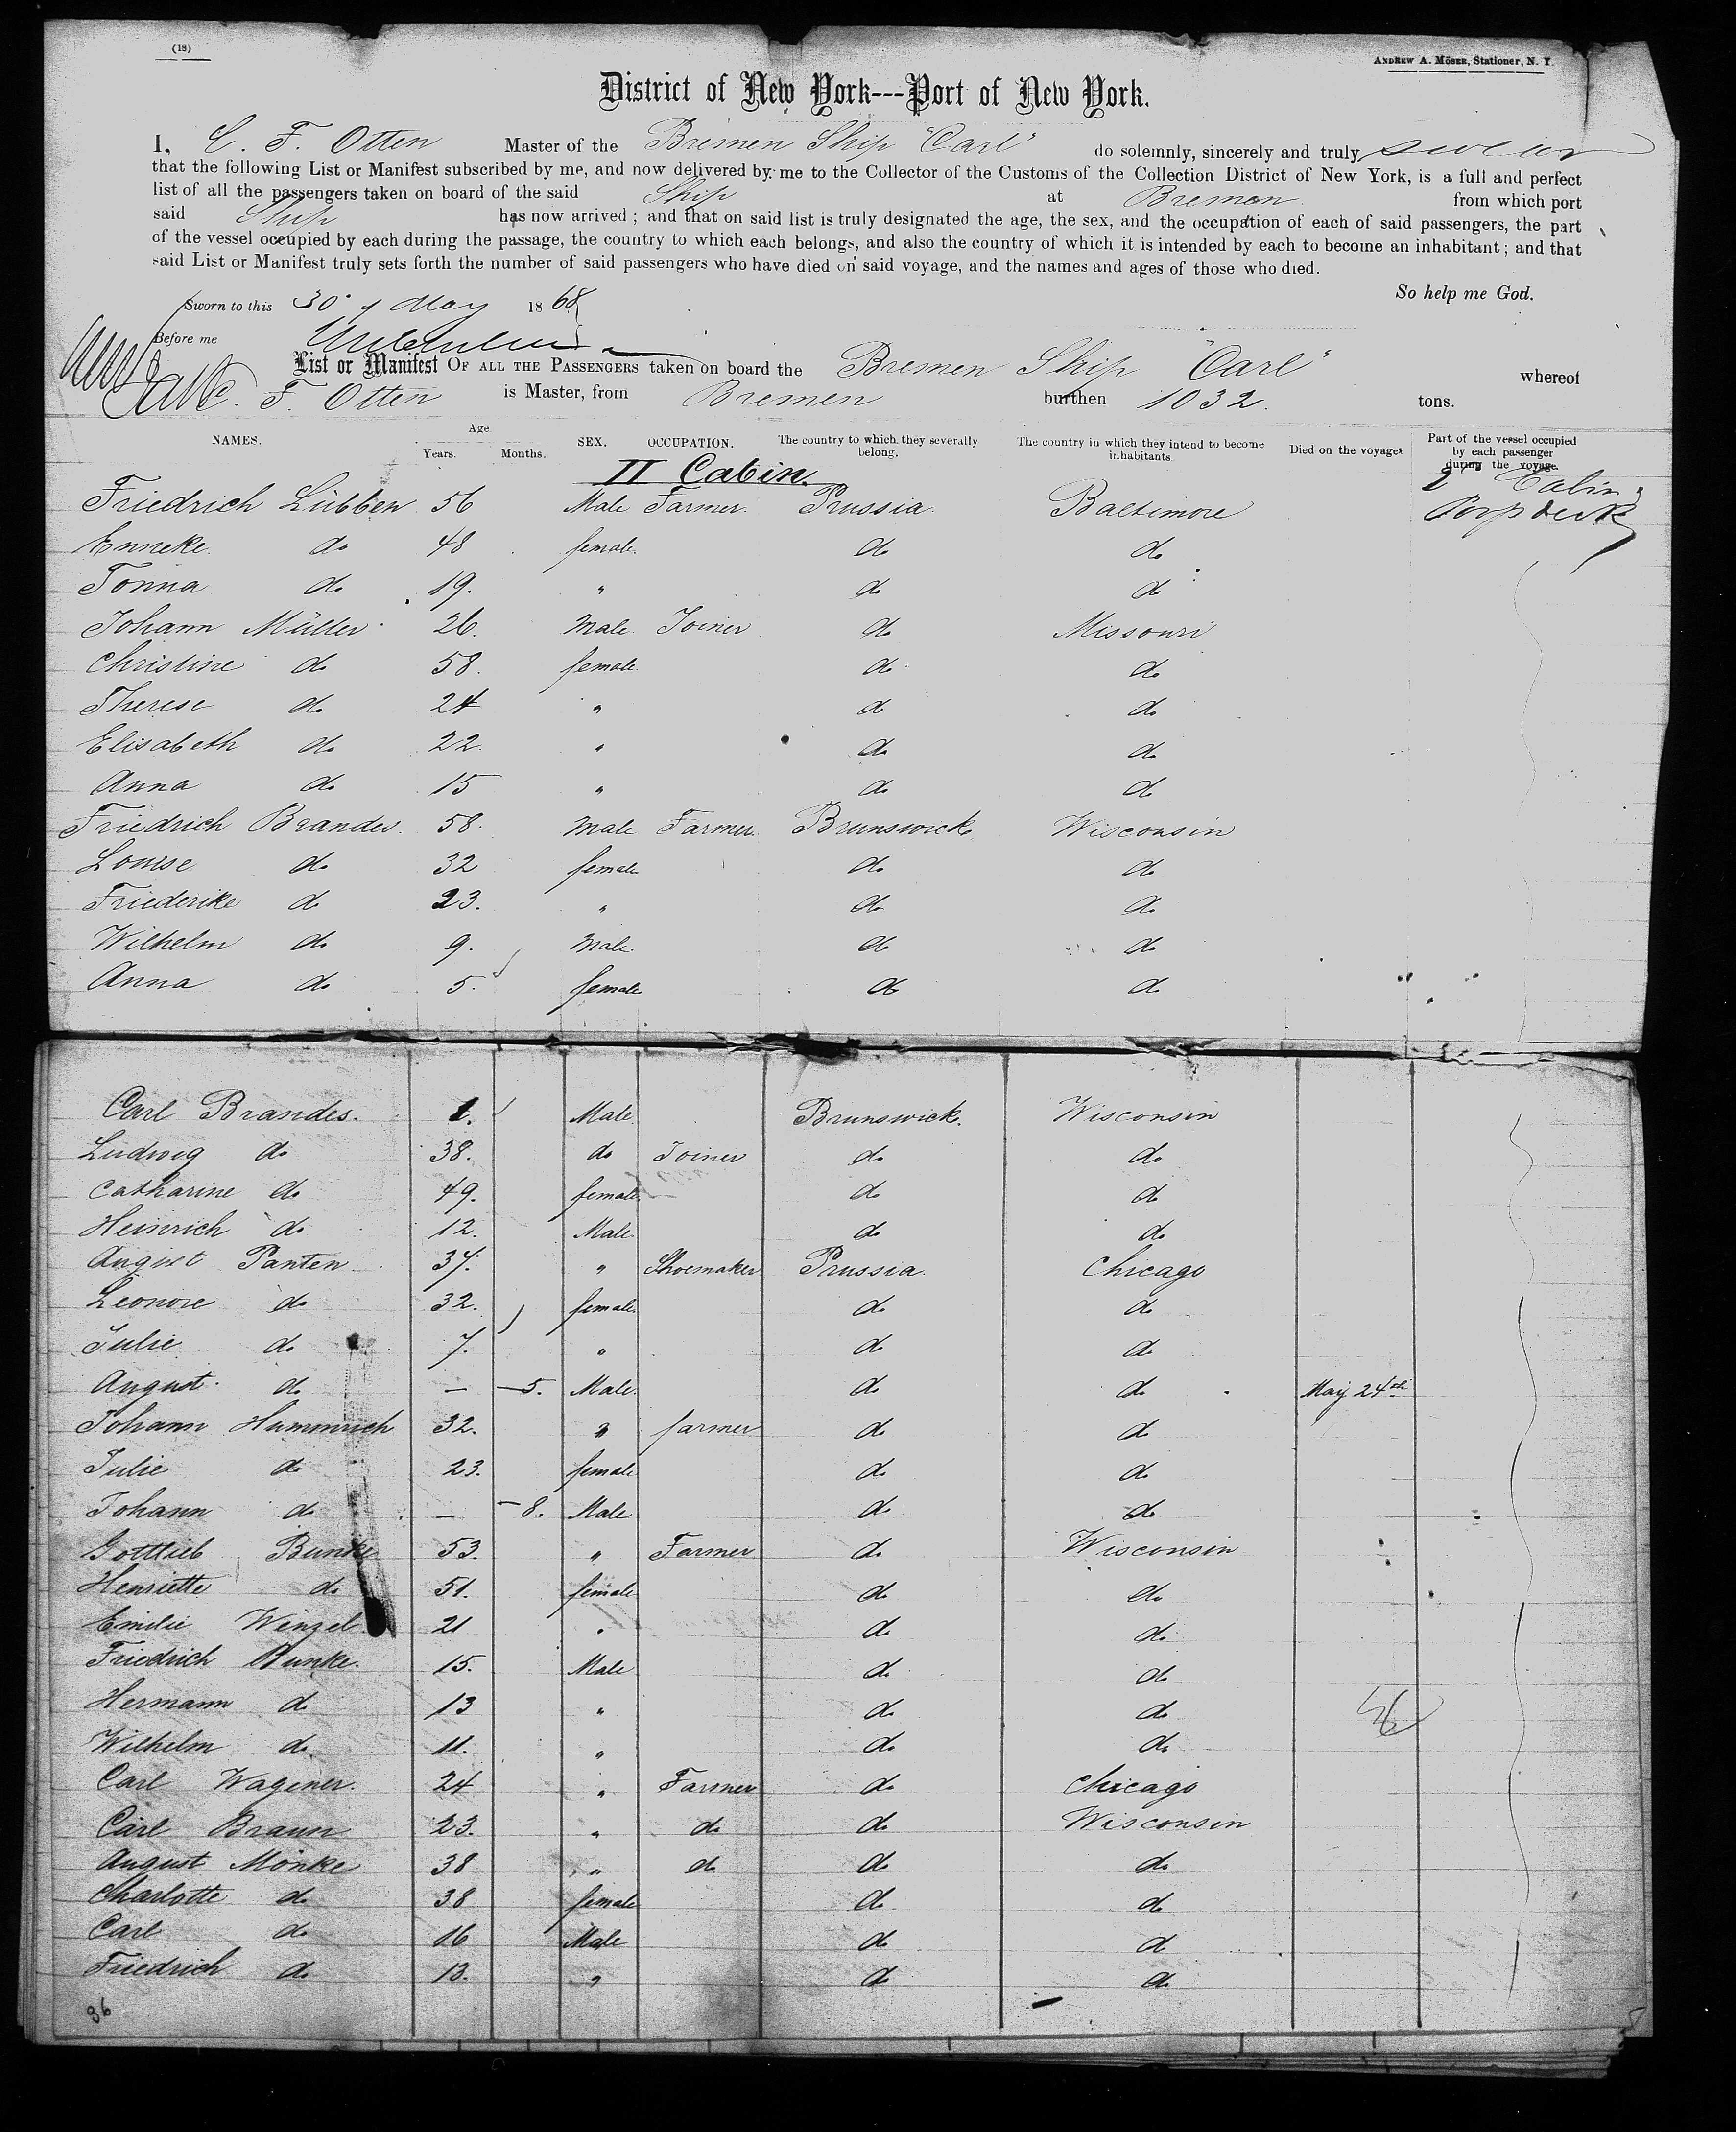 (18)
ANDREW A. MÖSER, Stationer, N. Y.
District of New York---Port of New York.
I, C. F. Otten Master of the Bremen Ship "Carl" do solemnly, sincerely and truly swear
that the following List or Manifest subscribed by me, and now delivered by me to the Collector of the Customs of the Collection District of New York, is a full and perfect
list of all the passengers taken on board of the said Ship at Bremen from which port
said Ship has now arrived; and that on said list is truly designated the age, the sex, and the occupation of each of said passengers, the part
of the vessel occupied by each during the passage, the country to which each belongs, and also the country of which it is intended by each to become an inhabitant; and that
said List or Manifest truly sets forth the number of said passengers who have died on said voyage, and the names and ages of those who died.
So help me God.
Sworn to this 30 of May 1868
Before me
List or Manifest OF ALL THE PASSENGERS taken on board the Bremen Ship "Carl" whereof
F. Otten is Master, from Bremen burthen 1032. tons.
NAMES. Age. Years. Months. SEX. OCCUPATION. The country to which they severally belong. The country in which they intend to become inhabitants. Died on the voyage. Part of the vessel occupied by each passenger during the voyage.
II Cabin.
Friedrich Lübben 56 Male Farmer. Prussia. Baltimore 2 Cabin
Enneke do 48 female. do do
Tonna do 19. " do do
Johann Müller 26. Male. Joiner do Missouri
Christine do 58. female do do
Therese do 24 " do do
Elisabeth do 22. " do do
Anna do 15 " do do
Friedrich Brandes. 58. Male Farmer. Brunswick. Wisconsin
Louise do 32 female do do
Friederike do 23. " do do
Wilhelm do 9. Male. do do
Anna do 5. female do do
Carl Brandes. 1. Male Brunswick. Wisconsin
Ludwig do 38. do Joiner do do
Catharine do 49. female do do
Heinrich do 12. Male. do do
August Panten 37. " Shoemaker Prussia Chicago
Leonore do 32. female. do do
Julie do 7. " do do
August do — —5. Male. do do May 24th
Johann Hummrich 32. " farmer do do
Julie do 23. female do do
Johann do — —8. Male do do
Gottlieb Bunke 53. " Farmer do Wisconsin
Henriette do 51. female do do
Emilie Wenzel 21 " do do
Friedrich Bunke. 15. Male do do
Hermann do 13 " do do
Wilhelm do 11. " do do
Carl Wagener. 24 " Farmer do Chicago
Carl Braun 23. " do do Wisconsin
August Mönke 38 " do do do
Charlotte do 38 female do do
Carl do 16 Male do do
Friedrich do 13. " do do
36